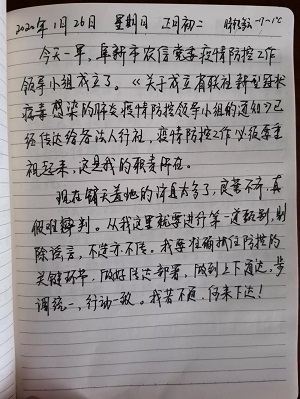 2020年1月26日 星期日 正月初二 -7-1℃
今天一早，阜新市农信党委疫情防控工作
领导小组成立了。《关于成立省联社新型冠状
病毒感染的肺炎疫情防控领导小组的通知》已
经传达给各法人行社，疫情防控工作必须重
视起来，这是我的职责所在。
现在铺天盖地的消息太多了，良莠不齐，真
假难辨判。从我这里就要进行第一道甄别，剔
除谣言，不造谣不传。我要准确抓住防控的
关键环节，做好传达部署，做到上下通达，步
调统一，行动一致。我若不通，何来下达！